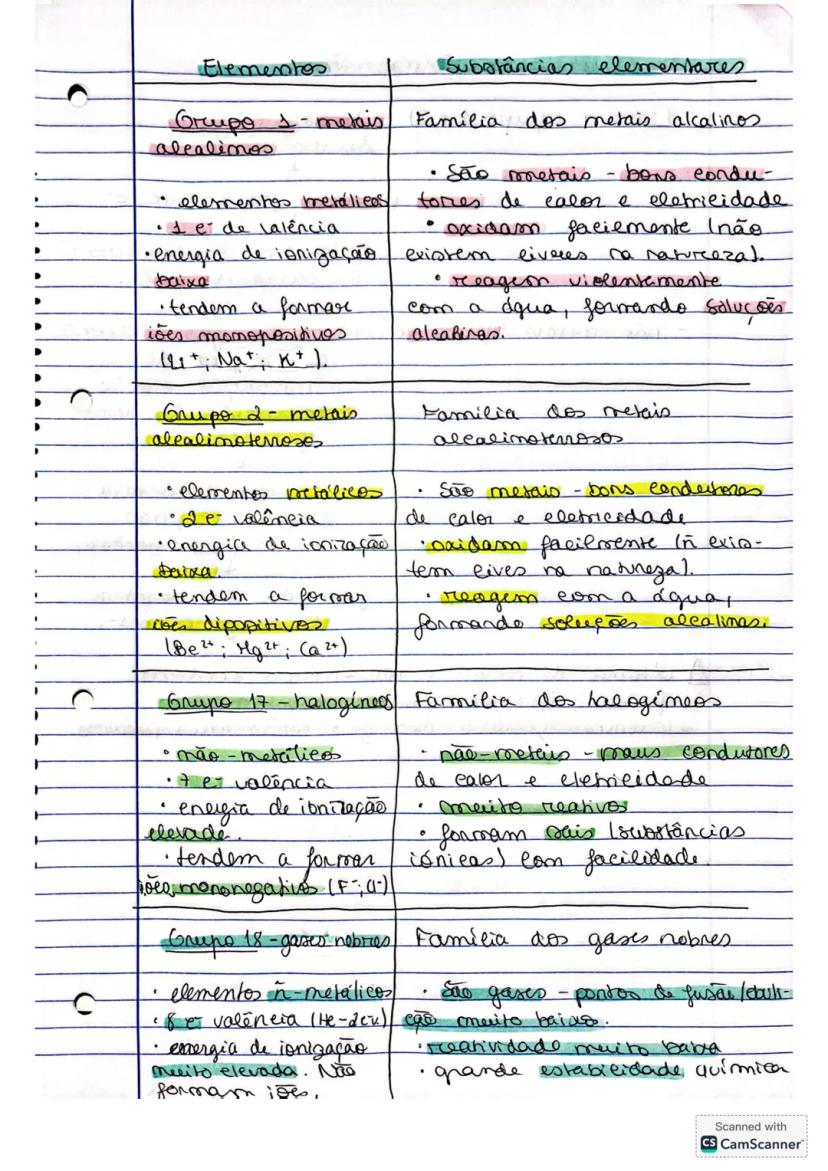 Elementos
Substâncias elementares
Grupo 1 - metais
alcalinos
• elementos metálicos
• 1 e⁻ de valência
• energia de ionização
baixa
• tendem a formar
iões monopositivos
(Li⁺; Na⁺; K⁺).
Família dos metais alcalinos
• São metais - bons condu-
tores de calor e eletricidade
• oxidam facilmente (não
existem livres na natureza).
• reagem violentamente
com a água, formando soluções
alcalinas.
Grupo 2 - metais
alcalinoterrosos
• elementos metálicos
• 2 e⁻ valência
• energia de ionização
baixa.
• tendem a formar
iões dipopitivos
(Be²⁺; Mg²⁺; Ca²⁺)
Família dos metais
alcalinoterrosos
• São metais - bons condutores
de calor e eletricidade
• oxidam facilmente (ñ exis-
tem livres na natureza).
• reagem com a água,
formando soluções alcalinas.
Grupo 17 - halogíneos
• não-metálicos
• 7 e⁻ valência
• energia de ionização
elevada.
• tendem a formar
iões mononegativos (F⁻; Cl⁻)
Família dos halogíneos
• não-metais - maus condutores
de calor e eletricidade
• muito reativos
• formam sais (substâncias
iónicas) com facilidade.
Grupo 18 - gases nobres
• elementos ñ-metálicos
• 8 e⁻ valência (He-2e.v.)
• energia de ionização
muito elevada. Não
formam iões.
Família dos gases nobres
• São gases - pontos de fusão/ebuli-
ção muito baixo.
• reatividade muito baixa
• grande estabilidade química
Scanned with
CS CamScanner